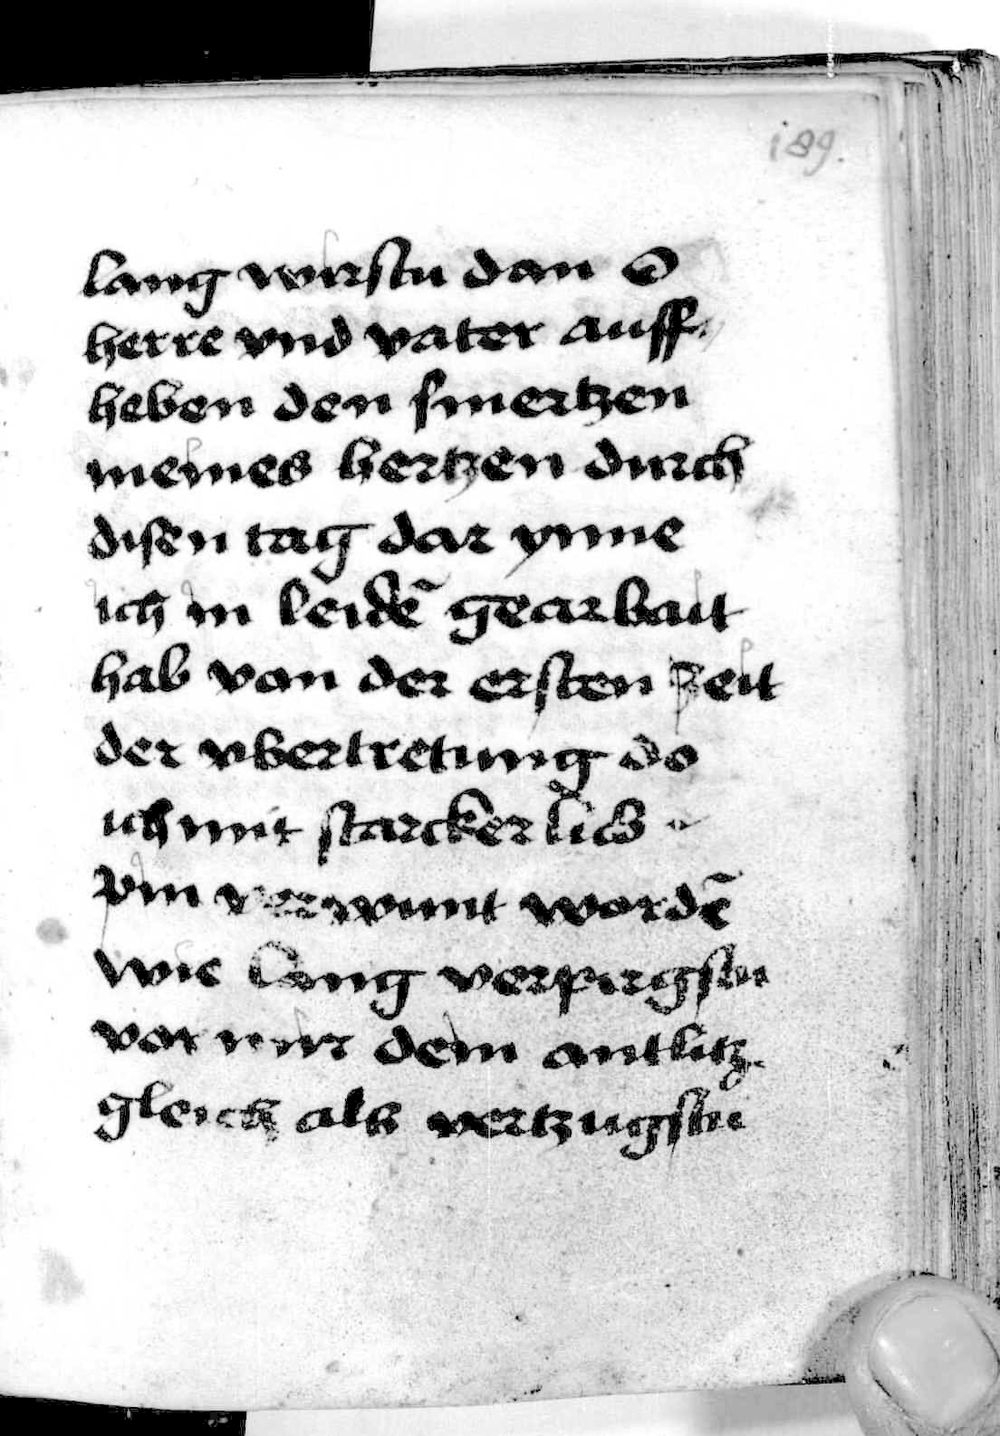 189.
lang wirstu dan O
herre vnd vater auff
heben den smertzen
meines hertzen durch
disen tag dar ynne
ich in leidē gearbait
hab von der ersten zeit
der vbertretung do
ich mit starcker lieb
pin verwunt wordē
wie lang verpirgstu
vor mir dein antlitz
gleich als vertzugstu